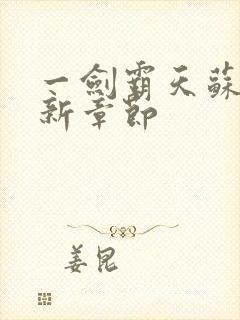 一劍霸天蘇
新章節
姜昆